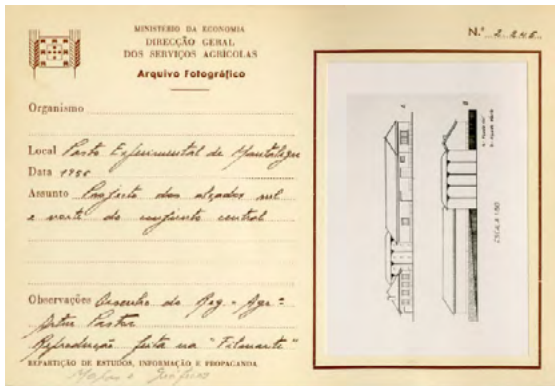 MINISTÉRIO DA ECONOMIA
DIRECÇÃO GERAL
DOS SERVIÇOS AGRÍCOLAS
Arquivo Fotográfico
N.º 2.245
Organismo
Local Posto Experimental de Montalegre
Data 1956
Assunto Projecto dos alçados sul
e norte do conjunto central
Observações Desenho do Reg. Agr.
Artur Pastor
Reprodução feita na "Filmarte"
REPARTIÇÃO DE ESTUDOS, INFORMAÇÃO E PROPAGANDA
A
B
ESCALA 1:50